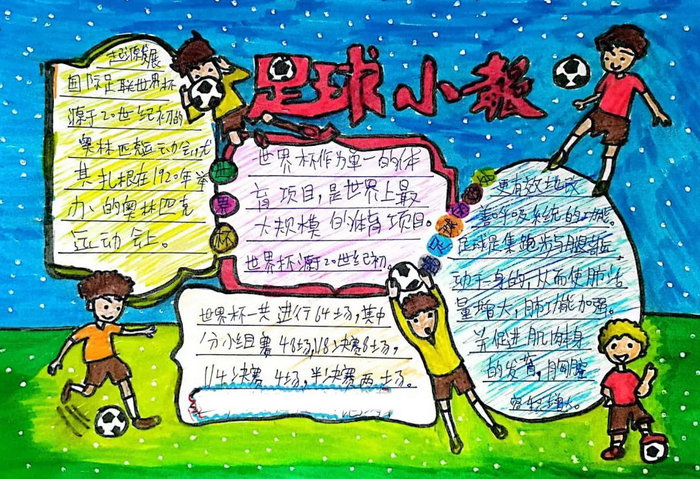 足球小报
起源发展
国际足联世界杯
源于20世纪初的
奥林匹克运动会
其扎根在1920年举
办的奥林匹克
运动会上。
世界杯
世界杯作为单一的体
育项目,是世界上最
大规模的体育项目。
世界杯源于20世纪初。
世界杯一共进行64场,其中
分小组赛48场,1/8决赛8场,
1/4决赛4场,半决赛两场。
更有效地改
善呼吸系统的功能。
足球是集跑步与腿部
功于一身的,从而使肺活
量增大,功能加强。
并促进肌肉
的发育,胸腔